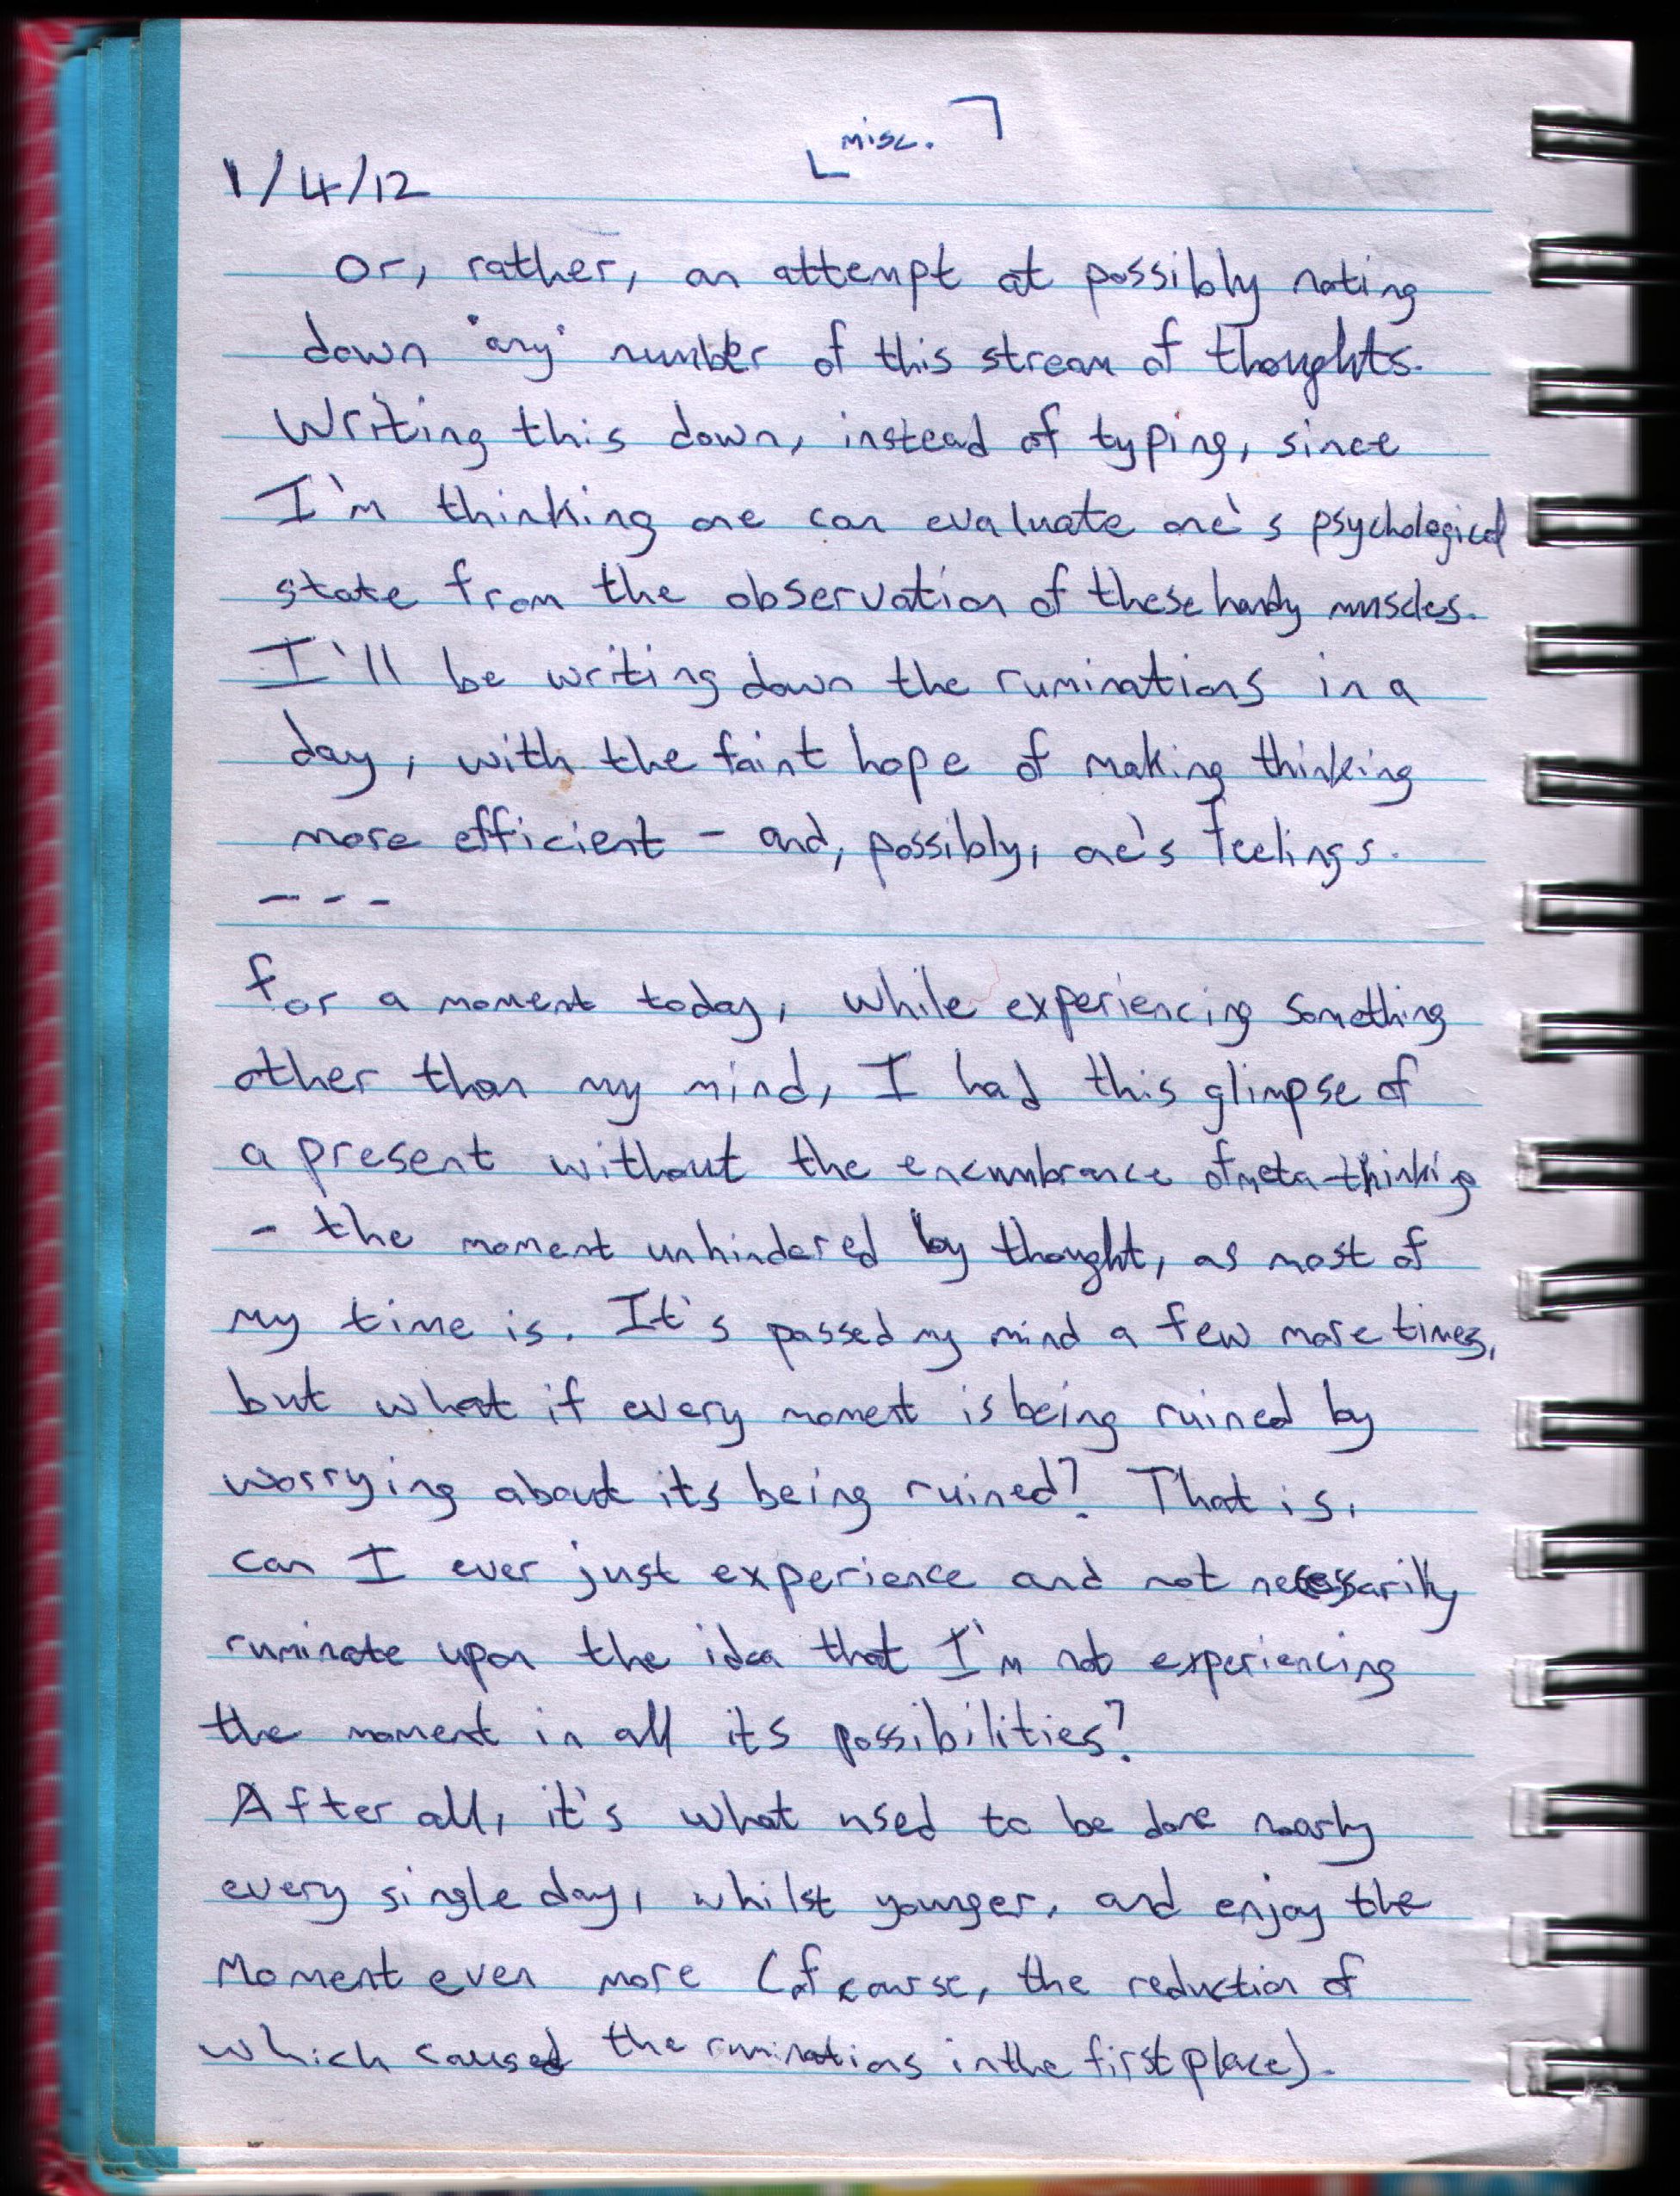 misc.
1/4/12
Or, rather, an attempt at possibly noting
down 'any' number of this stream of thoughts.
Writing this down, instead of typing, since
I'm thinking one can evaluate one's psychological
state from the observation of these handy muscles.
I'll be writing down the ruminations in a
day, with the faint hope of making thinking
more efficient - and, possibly, one's feelings.
---
For a moment today, while experiencing something
other than my mind, I had this glimpse of
a present without the encumbrance of meta-thinking
- the moment unhindered by thought, as most of
my time is. It's passed my mind a few more times,
but what if every moment is being ruined by
worrying about its being ruined? That is,
can I ever just experience and not necessarily
ruminate upon the idea that I'm not experiencing
the moment in all its possibilities?
After all, it's what used to be done nearly
every single day, whilst younger, and enjoy the
moment even more (of course, the reduction of
which caused the ruminations in the first place).